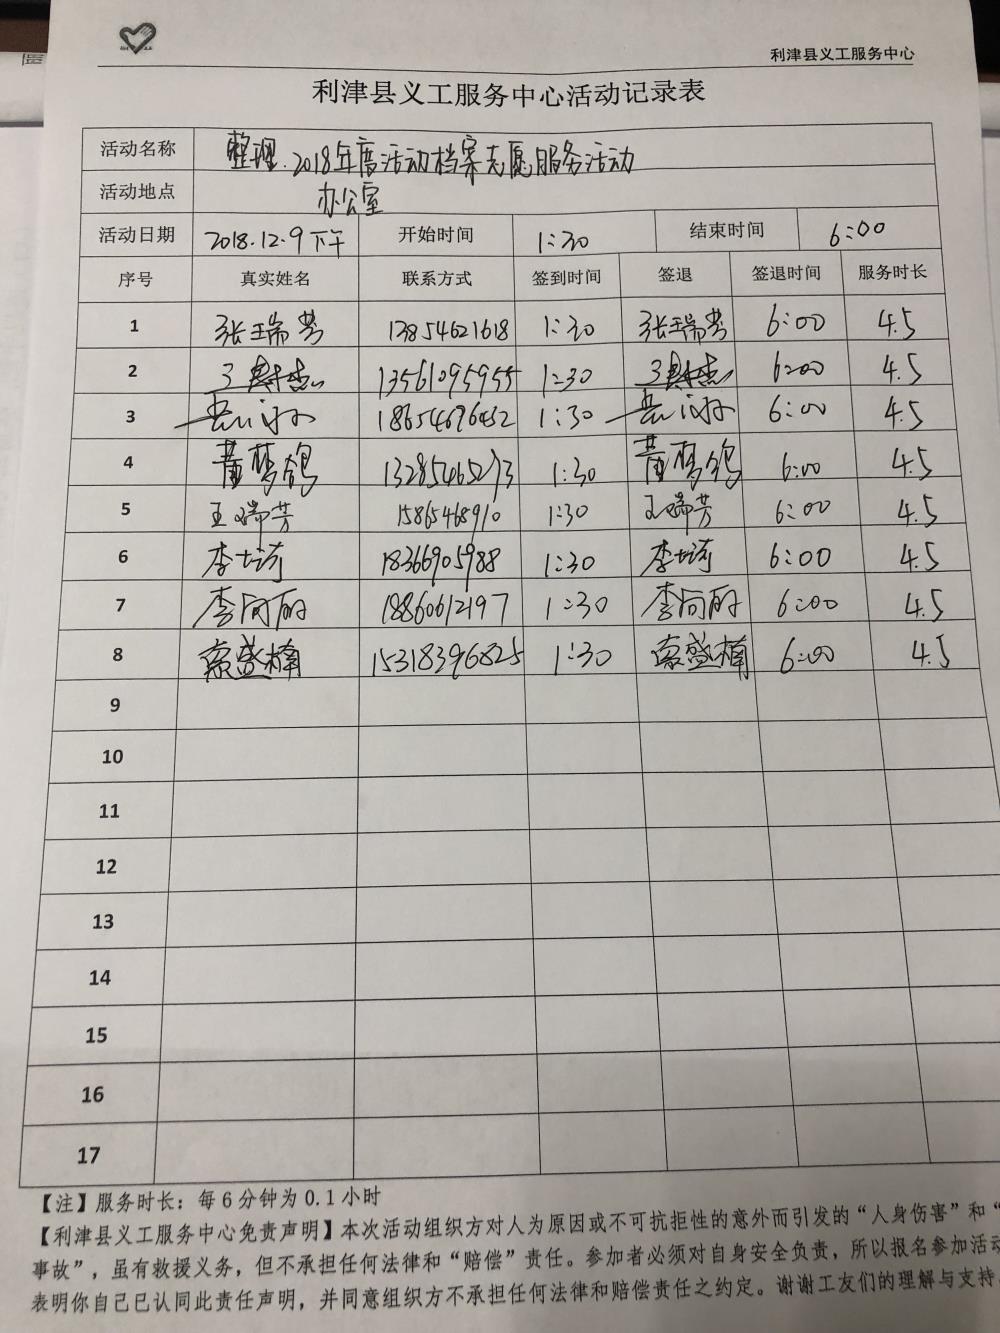 利津县义工服务中心
利津县义工服务中心活动记录表
活动名称 整理.2018年度活动档案志愿服务活动
活动地点 办公室
活动日期 2018.12.9下午 开始时间 1:30 结束时间 6:00
序号 真实姓名 联系方式 签到时间 签退 签退时间 服务时长
1 张瑞芳 13854621618 1:30 张瑞芳 6:00 4.5
2 13561095955 1:30 6:00 4.5
3 18654696452 1:30 6:00 4.5
4 黄梦鸽 13285465273 1:30 黄梦鸽 6:00 4.5
5 王瑞芳 15865468910 1:30 王瑞芳 6:00 4.5
6 李 18366905988 1:30 李 6:00 4.5
7 李向丽 18860612197 1:30 李向丽 6:00 4.5
8 盛楠 15318396825 1:30 盛楠 6:00 4.5
9
10
11
12
13
14
15
16
17
【注】服务时长：每6分钟为0.1小时
【利津县义工服务中心免责声明】本次活动组织方对人为原因或不可抗拒性的意外而引发的“人身伤害”和“
事故”，虽有救援义务，但不承担任何法律和“赔偿”责任。参加者必须对自身安全负责，所以报名参加活动
表明你自己已认同此责任声明，并同意组织方不承担任何法律和赔偿责任之约定。谢谢工友们的理解与支持